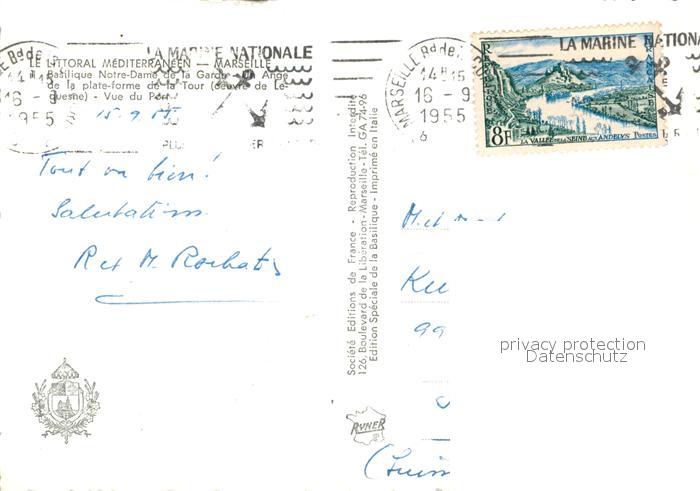 LE LITTORAL MÉDITERRANÉEN — MARSEILLE
Basilique Notre-Dame de la Garde - Un Ange
de la plate-forme de la Tour (oeuvre de Le-
quesne) - Vue du Port
15.9.55
Tout va bien!
Salutations
R et M. Rochat
LA MARINE NATIONALE
MARSEILLE Bd de
14 H 15
16 - 9
1955
LA MARINE NATIONALE
8F
LA VALLÉE DE LA SEINE AUX ANDELYS POSTES
Société Editions de France - Reproduction Interdite
126, Boulevard de la Libération - Marseille - Tél. GA 74-96
Edition Spéciale de la Basilique - Imprimé en Italie
RYNER
M. et
Ku
99
(Suiss
privacy protection
Datenschutz